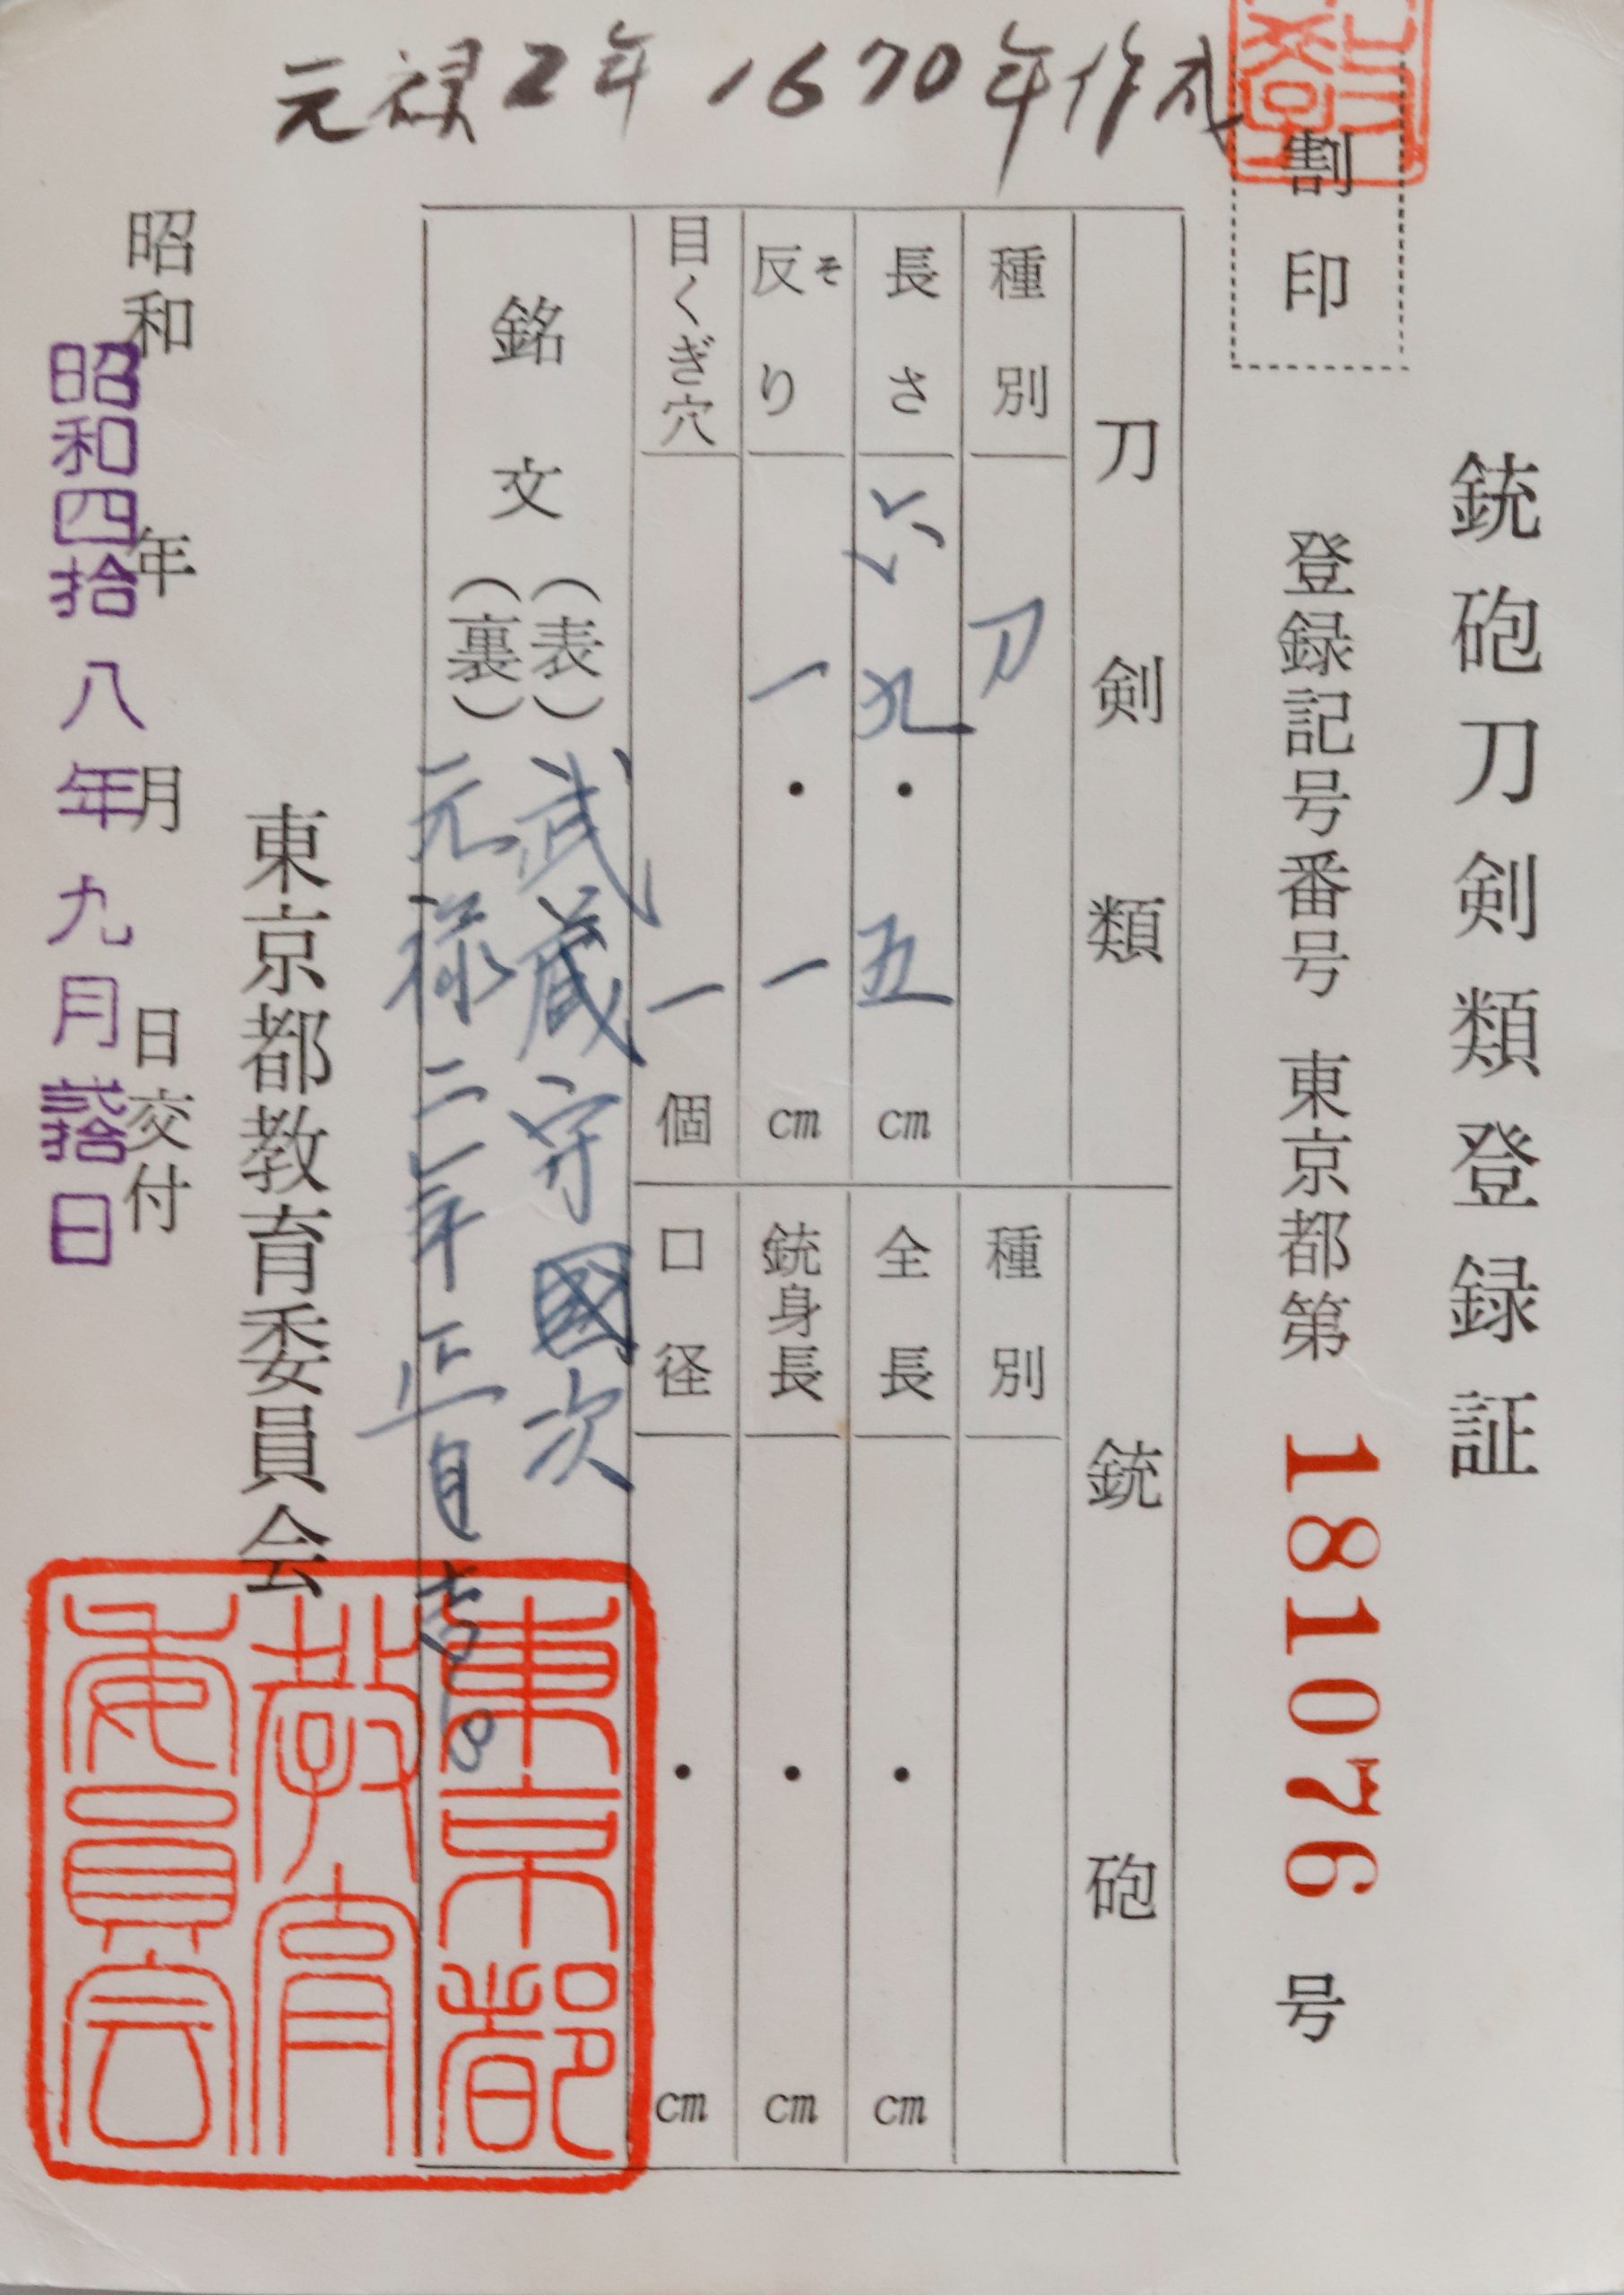 元禄2年 1670年作成
銃砲刀剣類登録証
割印
登録記号番号 東京都第 181076 号
刀剣類
種別 刀
長さ 六九・五 cm
反り 一・一 cm
そ
目くぎ穴 一 個
銃砲
種別
全長 ・ cm
銃身長 ・ cm
口径 ・ cm
銘文
(表) 武蔵守國次
(裏) 元禄二年正月吉日
東京都教育委員会
昭和 年 月 日交付
昭和四拾八年九月弐拾日
東京都
教育
委員会